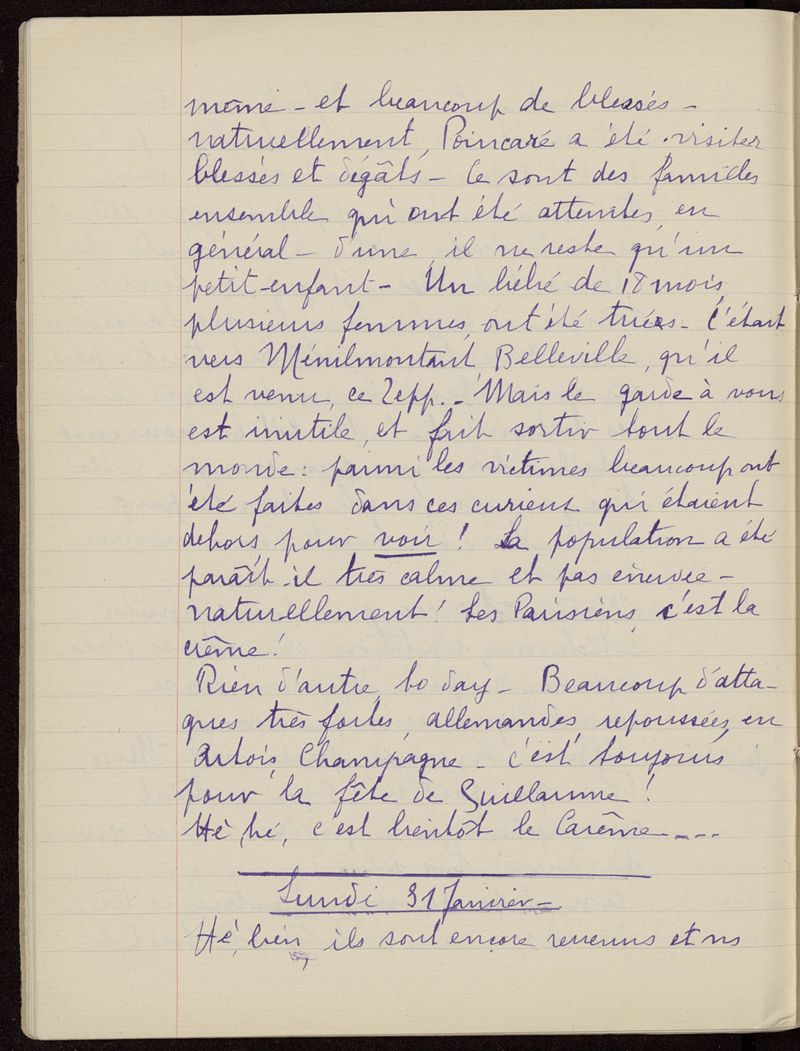 même - et beaucoup de blessés -
naturellement, Poincaré a été visiter
blessés et dégâts - Ce sont des familles
ensemble qui ont été atteintes, en
général - d'une, il ne reste qu'un
petit-enfant - Un bébé de 18 mois,
plusieurs femmes, ont été tuées - C'était
vers Ménilmontant, Belleville, qu'il
est venu, ce Zepp. - Mais le garde à vous
est inutile, et fait sortir tout le
monde : parmi les victimes beaucoup ont
été faites dans ces curieux qui étaient
dehors pour voir ! La population a été
paraît-il très calme et pas énervée -
naturellement ! Les Parisiens, c'est la
crème !
Rien d'autre, to day - Beaucoup d'atta-
ques très fortes, allemandes, repoussées, en
Artois, Champagne - C'est toujours
pour la fête de Guillaume !
Hé, hé, c'est bientôt le Carême - - -
Lundi 31 Janvier -
Hé, bien, ils sont encore revenus et ns